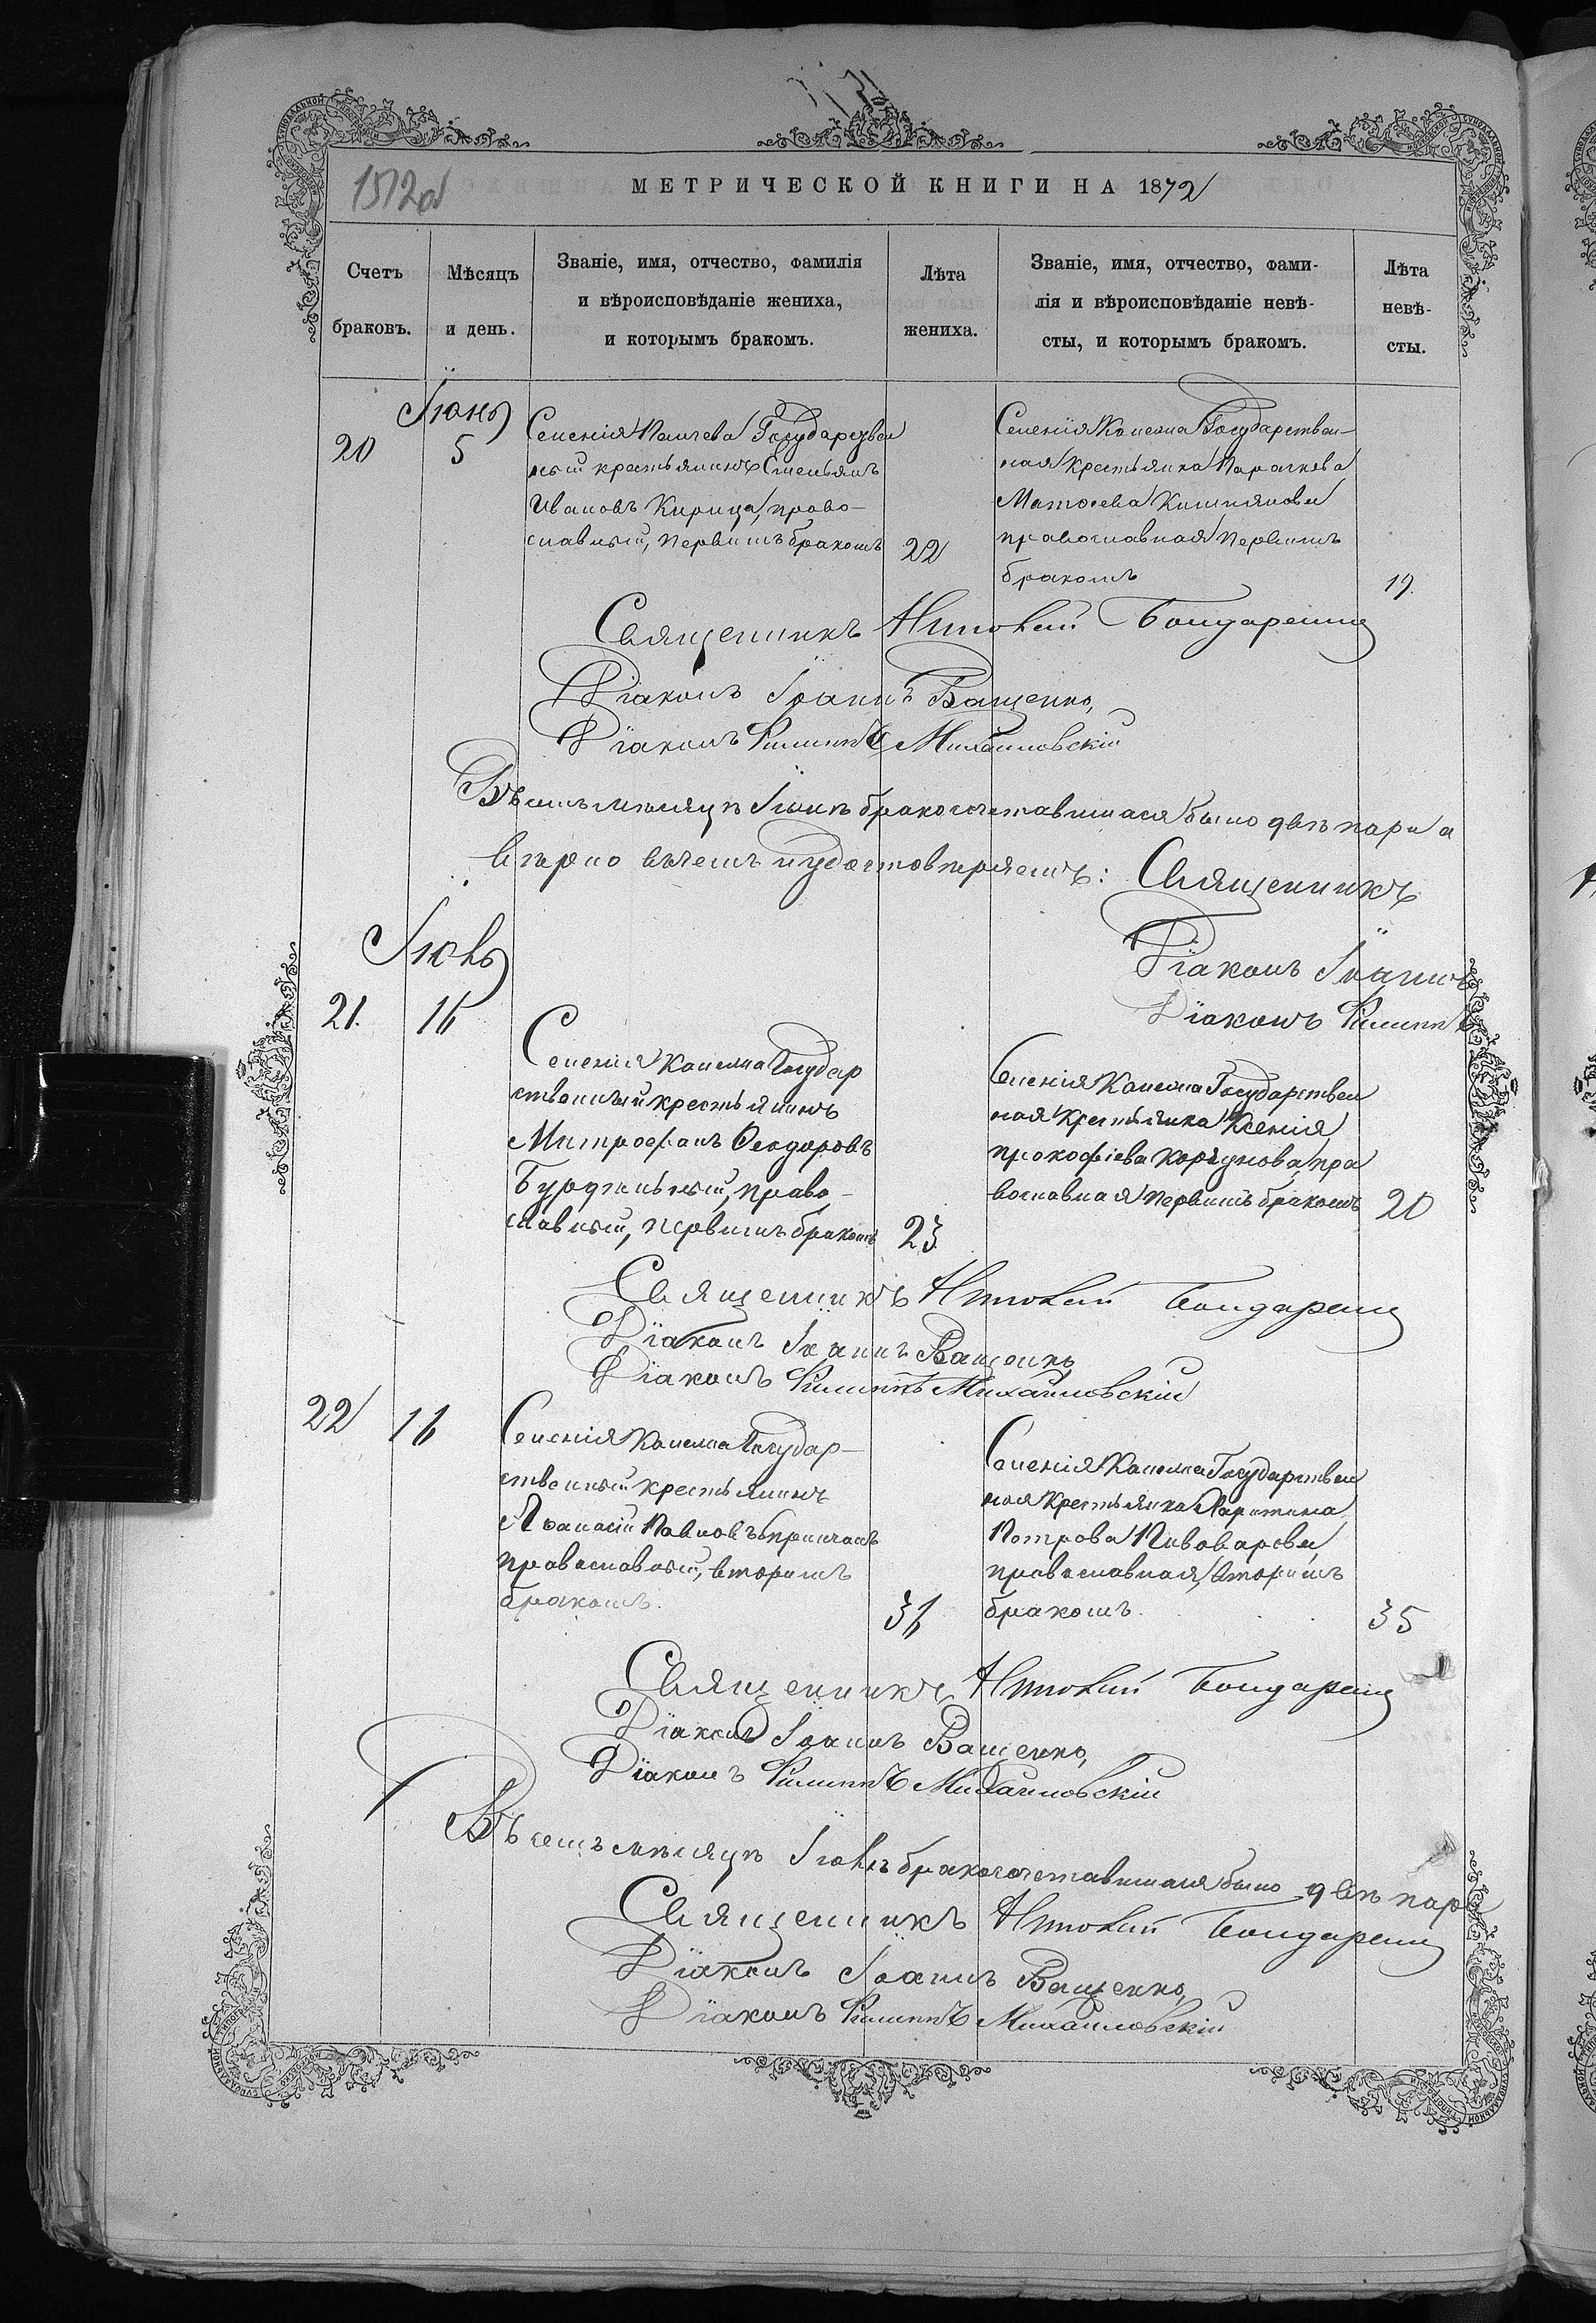 МЕТРИЧЕСКОЙ КНИГИ НА 1872
Счетъ браковъ.
Мѣсяцъ и день.
Званіе, имя, отчество, фамилія
и вѣроисповѣданіе жениха,
и которымъ бракомъ.
Лѣта жениха.
Званіе, имя, отчество, фами-
лія и вѣроисповѣданіе невѣ-
сты, и которымъ бракомъ.
Лѣта невѣ-
сты.
Іюнь
20
5
Селенія Государствен
ный крестьянинъ Емельянъ
Ивановъ Кирица, право-
славный, первымъ бракомъ
22
Селенія Государствен-
ная крестьянка Параскева
Матѳеева
православная первымъ
бракомъ
19.
Священникъ Бондаренко
Діаконъ Іоаннъ Ващенко,
Діаконъ Филиппъ Михайловскій
Въ семъ мѣсяцѣ Іюнѣ бракосочетавшихся было двѣ пары а
вѣрно въ чемъ и удостовѣряемъ: Священникъ
Діаконъ Іоаннъ
Діаконъ Филиппъ
Іюль
21.
16
Селенія Государ
ственный крестьянинъ
Митрофанъ Ѳеодоровъ
право-
славный, первымъ бракомъ
23
Селенія Государствен
ная крестьянка Ксенія
Прокофіева пра
вославная первымъ бракомъ
20
Священникъ Бондаренко
Діаконъ Іоаннъ Ващенко,
Діаконъ Филиппъ Михайловскій
22
16
Селенія Государ-
ственный крестьянинъ
Аѳанасій Павловъ
православный, вторымъ
бракомъ.
36
Селенія Государствен
ная крестьянка Харитина
Петрова Пивоварова
православная, вторымъ
бракомъ.
35
Священникъ Бондаренко
Діаконъ Іоаннъ Ващенко,
Діаконъ Филиппъ Михайловскій
Въ семъ мѣсяцѣ Іюлѣ бракосочетавшихся было двѣ пары
Священникъ Бондаренко
Діаконъ Іоаннъ Ващенко,
Діаконъ Филиппъ Михайловскій